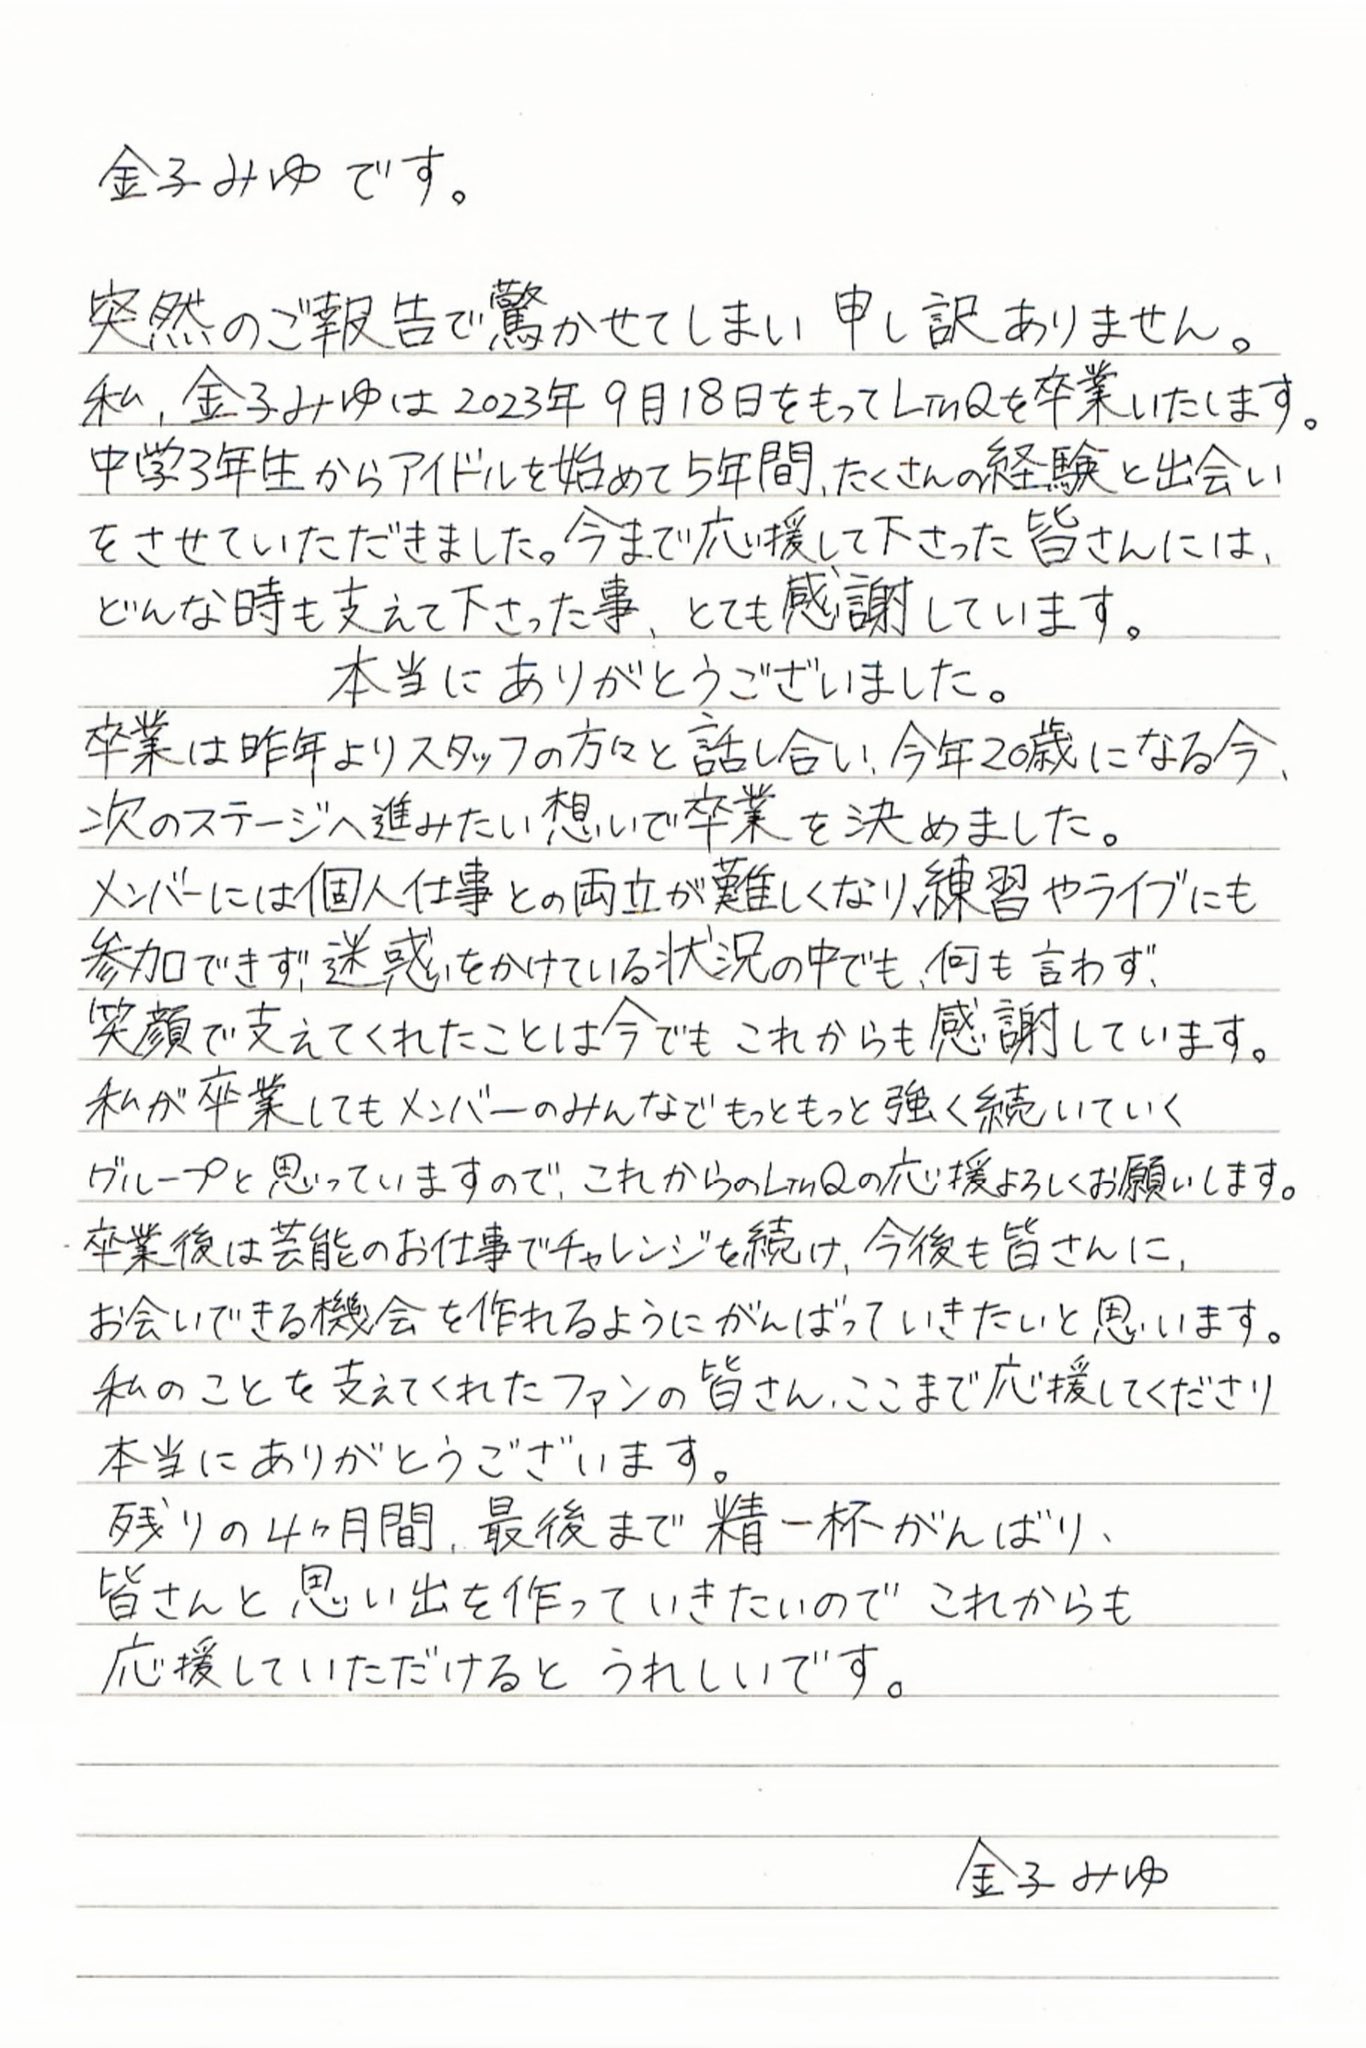 金子みゆです。
突然のご報告で驚かせてしまい申し訳ありません。
私、金子みゆは2023年9月18日をもってLinQを卒業いたします。
中学3年生からアイドルを始めて5年間、たくさんの経験と出会い
をさせていただきました。今まで応援して下さった皆さんには、
どんな時も支えて下さった事、とても感謝しています。
本当にありがとうございました。
卒業は昨年よりスタッフの方々と話し合い、今年20歳になる今、
次のステージへ進みたい想いで卒業を決めました。
メンバーには個人仕事との両立が難しくなり、練習やライブにも
参加できず、迷惑をかけている状況の中でも、何も言わず、
笑顔で支えてくれたことは今でもこれからも感謝しています。
私が卒業してもメンバーのみんなでもっともっと強く続いていく
グループと思っていますので、これからのLinQの応援よろしくお願いします。
卒業後は芸能のお仕事でチャレンジを続け、今後も皆さんに、
お会いできる機会を作れるようにがんばっていきたいと思います。
私のことを支えてくれたファンの皆さん、ここまで応援してくださり
本当にありがとうございます。
残りの4ヶ月間、最後まで精一杯がんばり、
皆さんと思い出を作っていきたいのでこれからも
応援していただけるとうれしいです。
金子みゆ